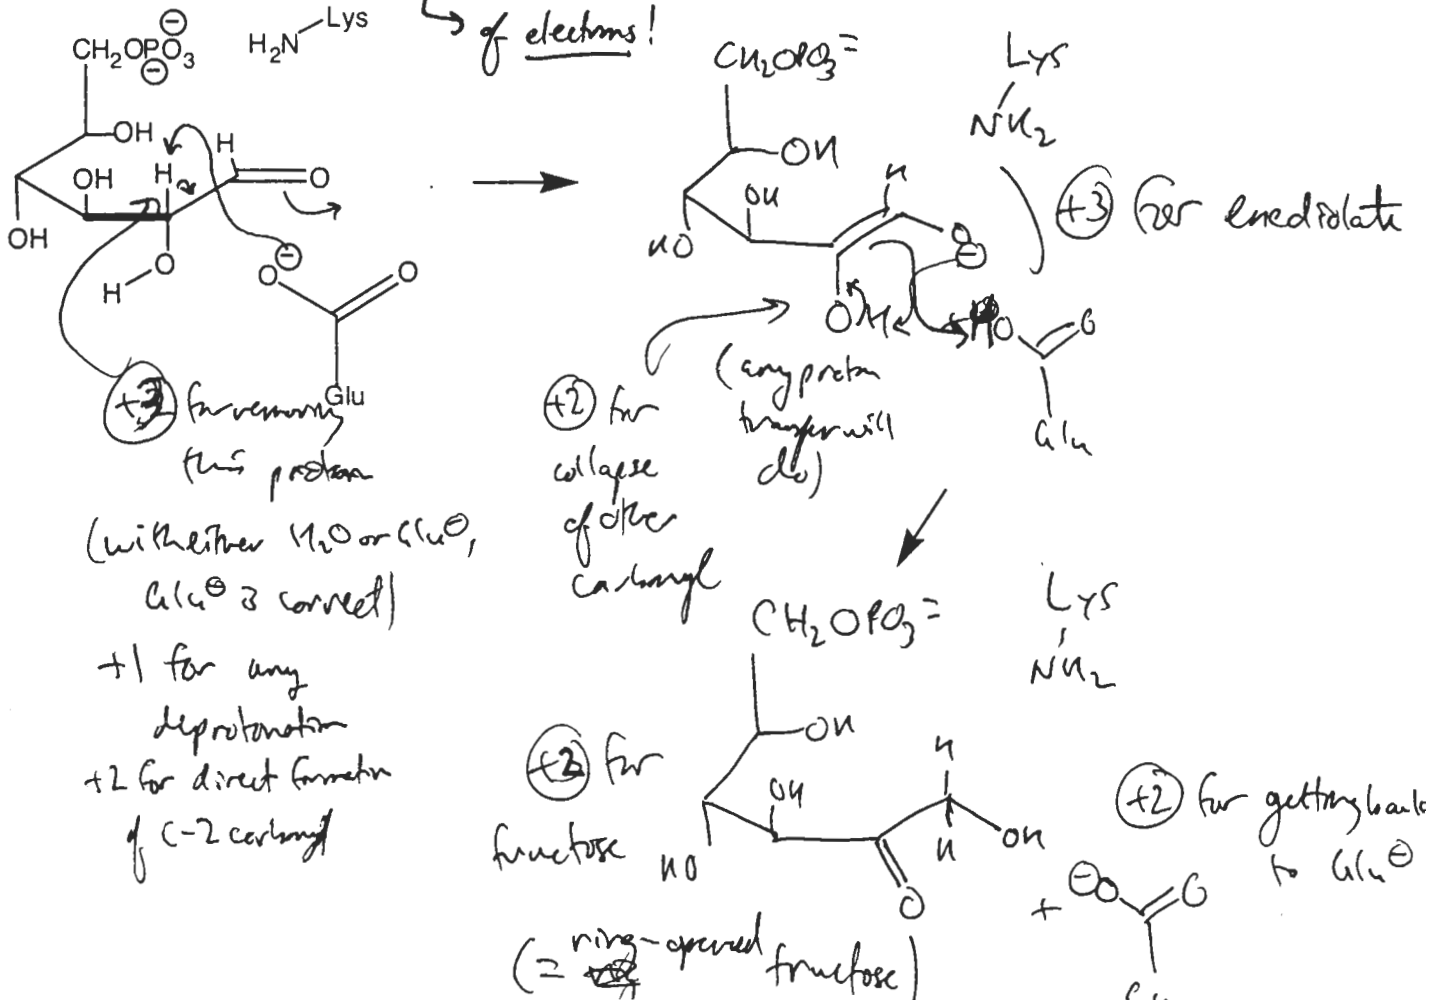 of electrons!
CH₂OPO₃ ⊖ ⊖
H₂N Lys
OH
H
H
O
OH
OH
O
H
⊖
O
O
Glu
+3 for removing
this proton
(with either H₂O or Glu⊖,
Glu⊖ is correct)
+1 for any
deprotonation
+2 for direct formation
of C-2 carbonyl
CH₂OPO₃=
Lys
NH₂
OH
OH
H
HO
O⊖
OH
HO
O
Glu
+3 for enediolate
+2 for
collapse
of other
carbonyl
(any proton
transfer will
do)
CH₂OPO₃=
Lys
NH₂
OH
OH
HO
H
H
OH
O
+2 for
fructose
(= ring-opened fructose)
+2 for getting back
to Glu⊖
+
⊖O
O